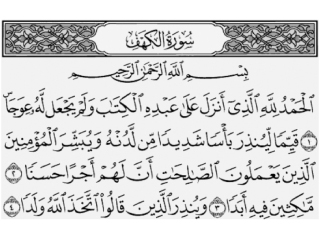 سُورَةُ الكَهْفِ
بِسْمِ اللَّهِ الرَّحْمَٰنِ الرَّحِيمِ
الْحَمْدُ لِلَّهِ الَّذِي أَنْزَلَ عَلَىٰ عَبْدِهِ الْكِتَابَ وَلَمْ يَجْعَل لَّهُ عِوَجًا ۜ
﴿١﴾ قَيِّمًا لِّيُنذِرَ بَأْسًا شَدِيدًا مِّن لَّدُنْهُ وَيُبَشِّرَ الْمُؤْمِنِينَ
الَّذِينَ يَعْمَلُونَ الصَّالِحَاتِ أَنَّ لَهُمْ أَجْرًا حَسَنًا ﴿٢﴾
مَّاكِثِينَ فِيهِ أَبَدًا ﴿٣﴾ وَيُنذِرَ الَّذِينَ قَالُوا اتَّخَذَ اللَّهُ وَلَدًا ﴿٤﴾